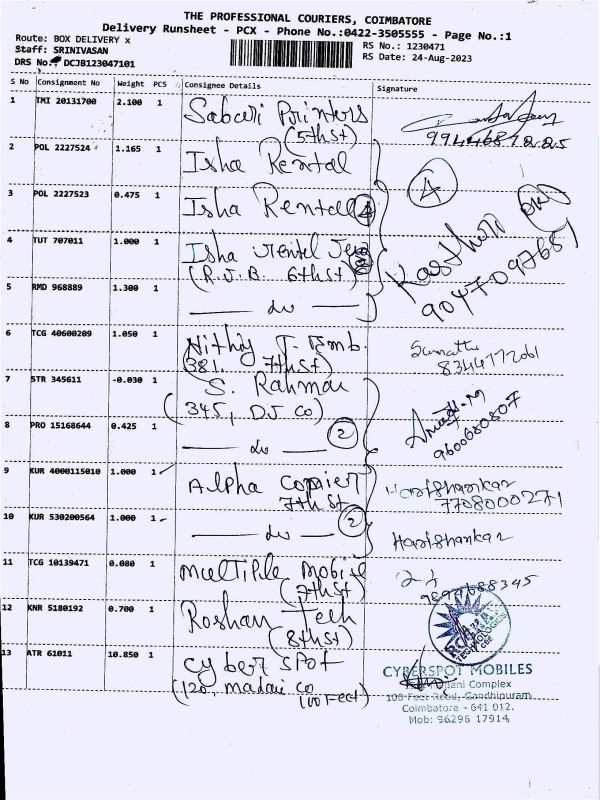 THE PROFESSIONAL COURIERS, COIMBATORE
Delivery Runsheet - PCX - Phone No.:0422-3505555 - Page No.:1
Route: BOX DELIVERY x
RS No.: 1230471
Staff: SRINIVASAN
RS Date: 24-Aug-2023
DRS No. DCJB123047101
S No Consignment No Weight PCS Consignee Details Signature
1 TMI 20131700 2.100 1 Sabari Printers
(5th st) 9944687225
2 POL 2227524 1.165 1 Isha Rental
3 POL 2227523 0.475 1 Isha Rental 4
4 TUT 707011 1.000 1 Isha Rental
(R.J.B. 6th st) 9047097687
5 RMD 968889 1.300 1 do
6 TCG 40600209 1.050 1 Nithiy T. Emb.
(381. 7th st) 8344772061
7 STR 345611 -0.030 1 S. Rahman
(345, DJ Co)
8 PRO 15168644 0.425 1 do 2 9600680807
9 KUR 4000115010 1.000 1 Alpha Copier Harishankar
7th st 7708000271
10 KUR 530200564 1.000 1 do 2 Harishankar
11 TCG 10139471 0.080 1 Multiple Mobile
(7th st)
12 KNR 5180192 0.700 1 Roshan Tech
(8th st)
13 ATR 61011 10.850 1 Cyber Spot
(120, Madari Co
100 Feet)
CYBERSPOT MOBILES
Complex
100 Feet Road, Gandhipuram
Coimbatore - 641 012.
Mob: 96296 17914